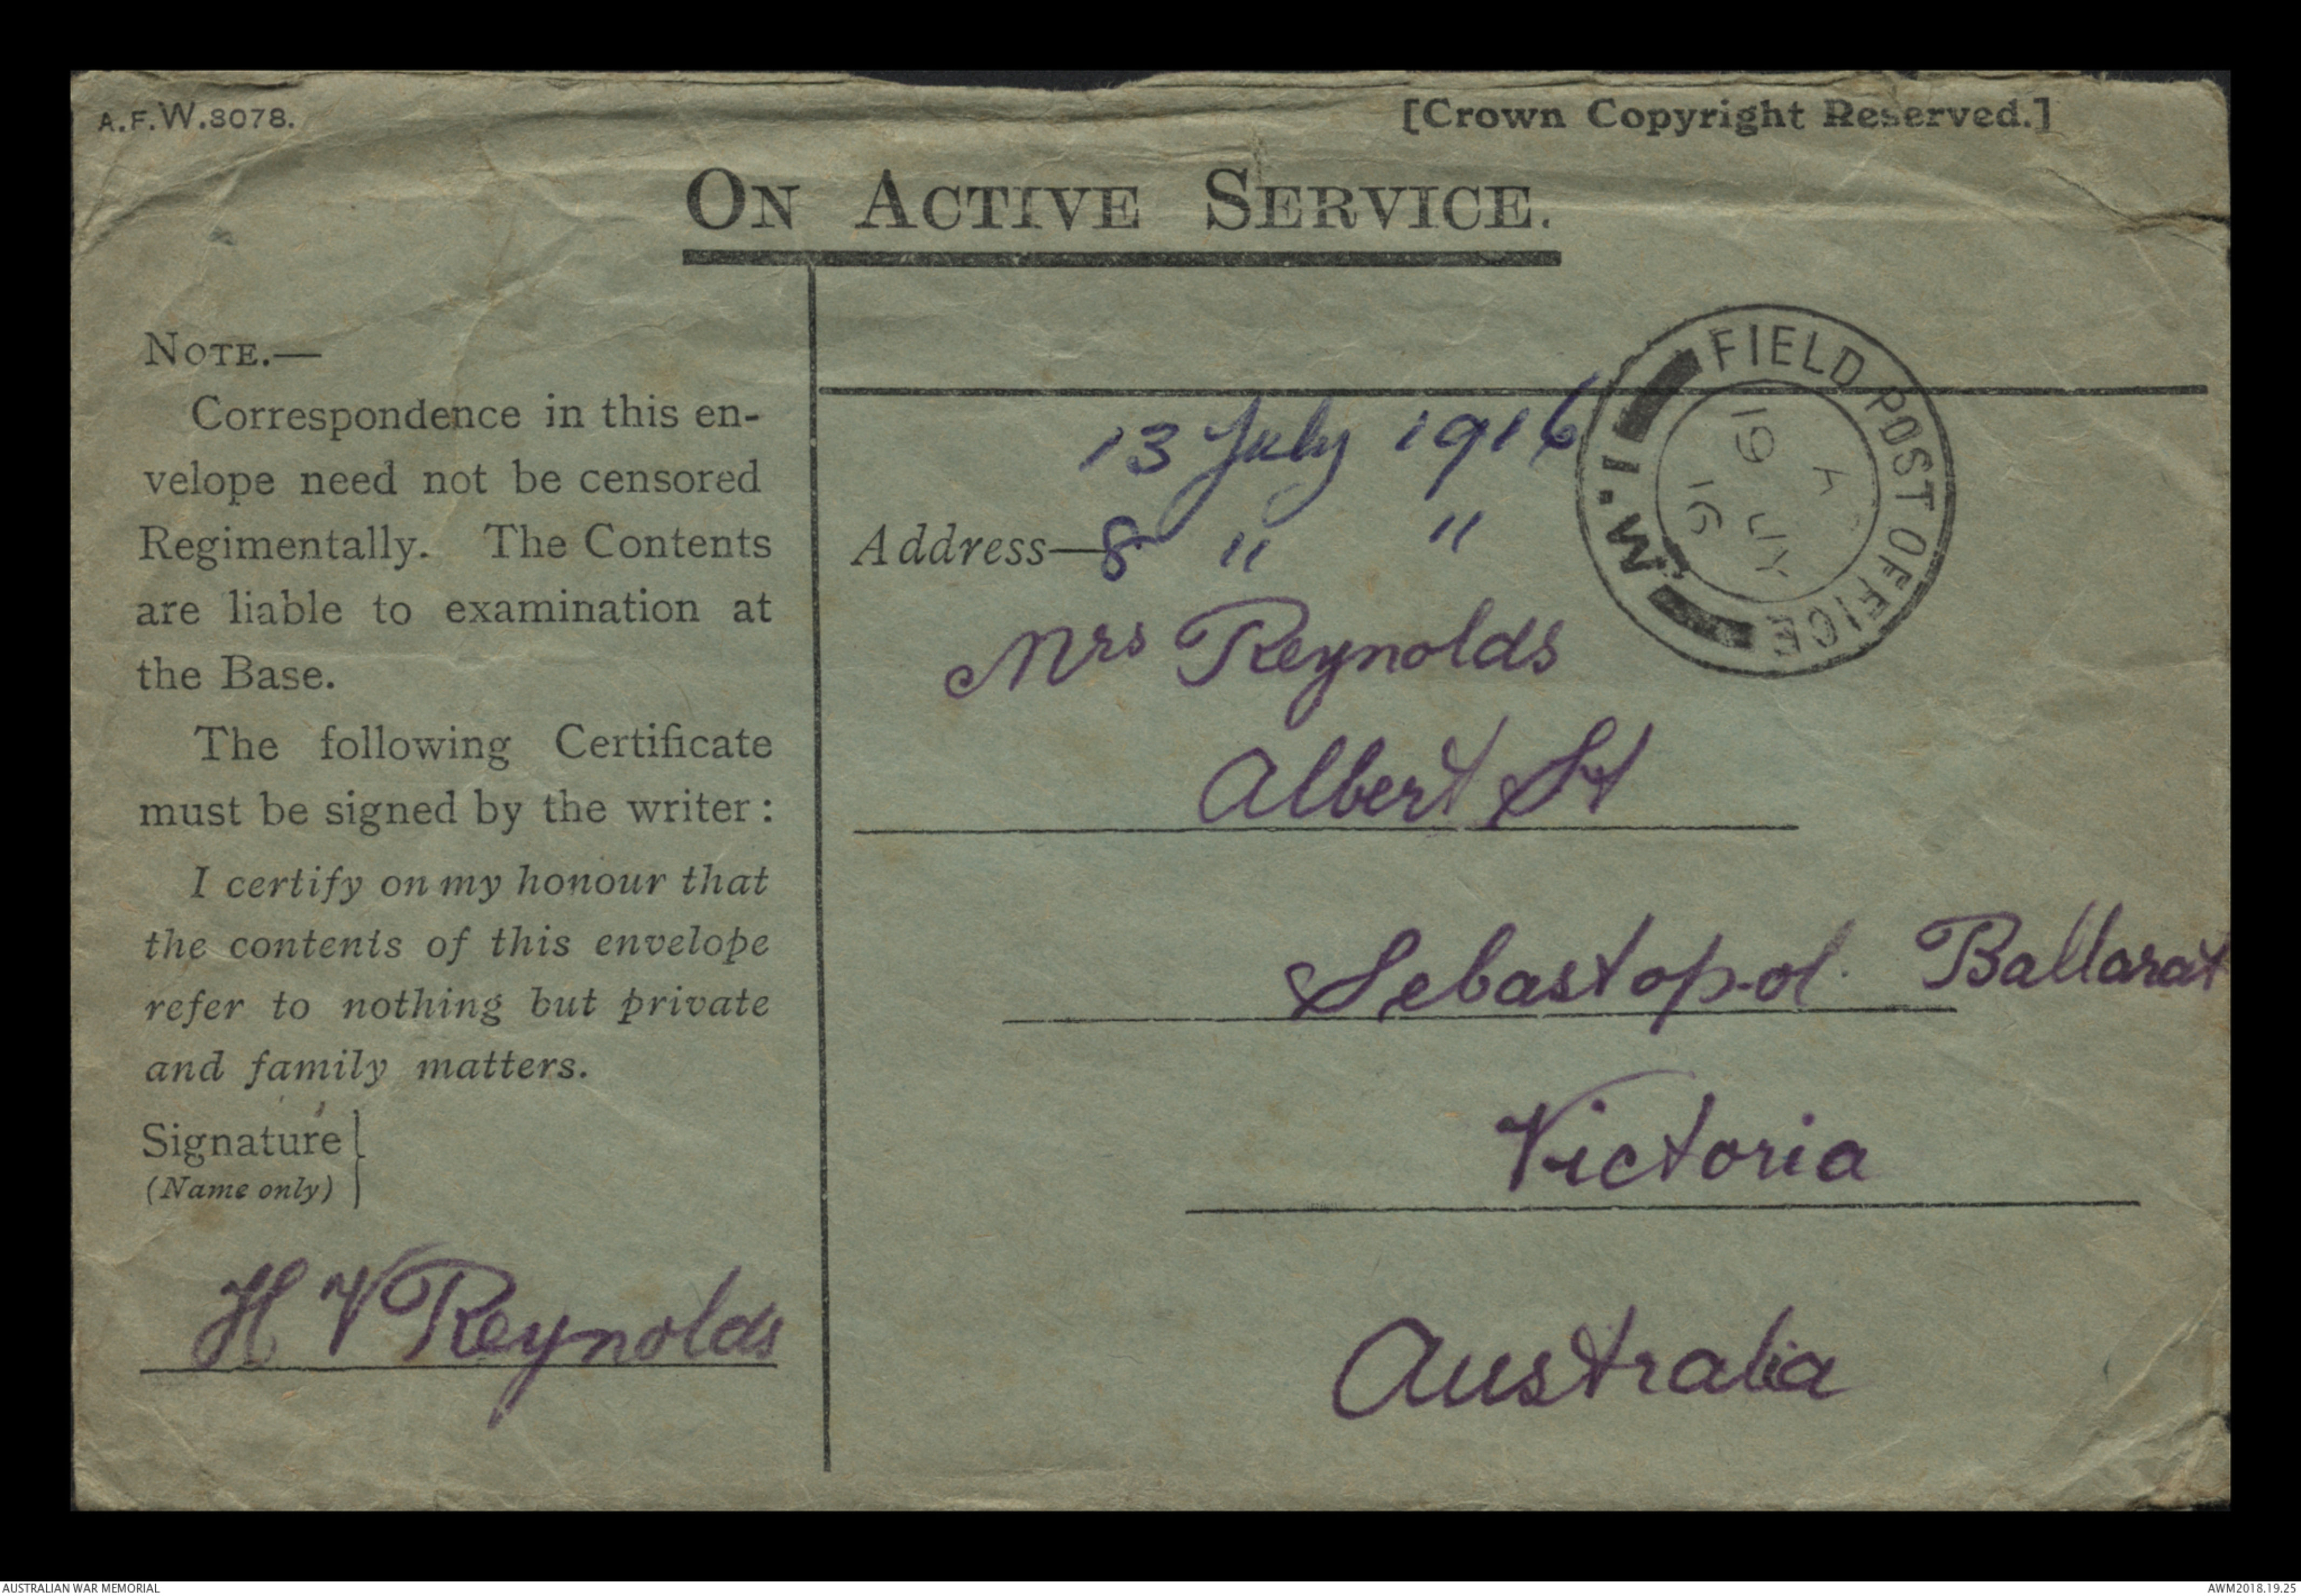 A.F.W.3078.
[Crown Copyright Reserved.]
ON ACTIVE SERVICE.
NOTE.—
Correspondence in this en-
velope need not be censored
Regimentally. The Contents
are liable to examination at
the Base.
The following Certificate
must be signed by the writer:
I certify on my honour that
the contents of this envelope
refer to nothing but private
and family matters.
Signature
(Name only)
H V Reynolds
FIELD POST OFFICE
M.1
A
19 JY
16
13 July 1916
Address— 8 " "
Mrs Reynolds
Albert St
Sebastopol. Ballarat
Victoria
Australia
AUSTRALIAN WAR MEMORIAL
AWM2018.19.25